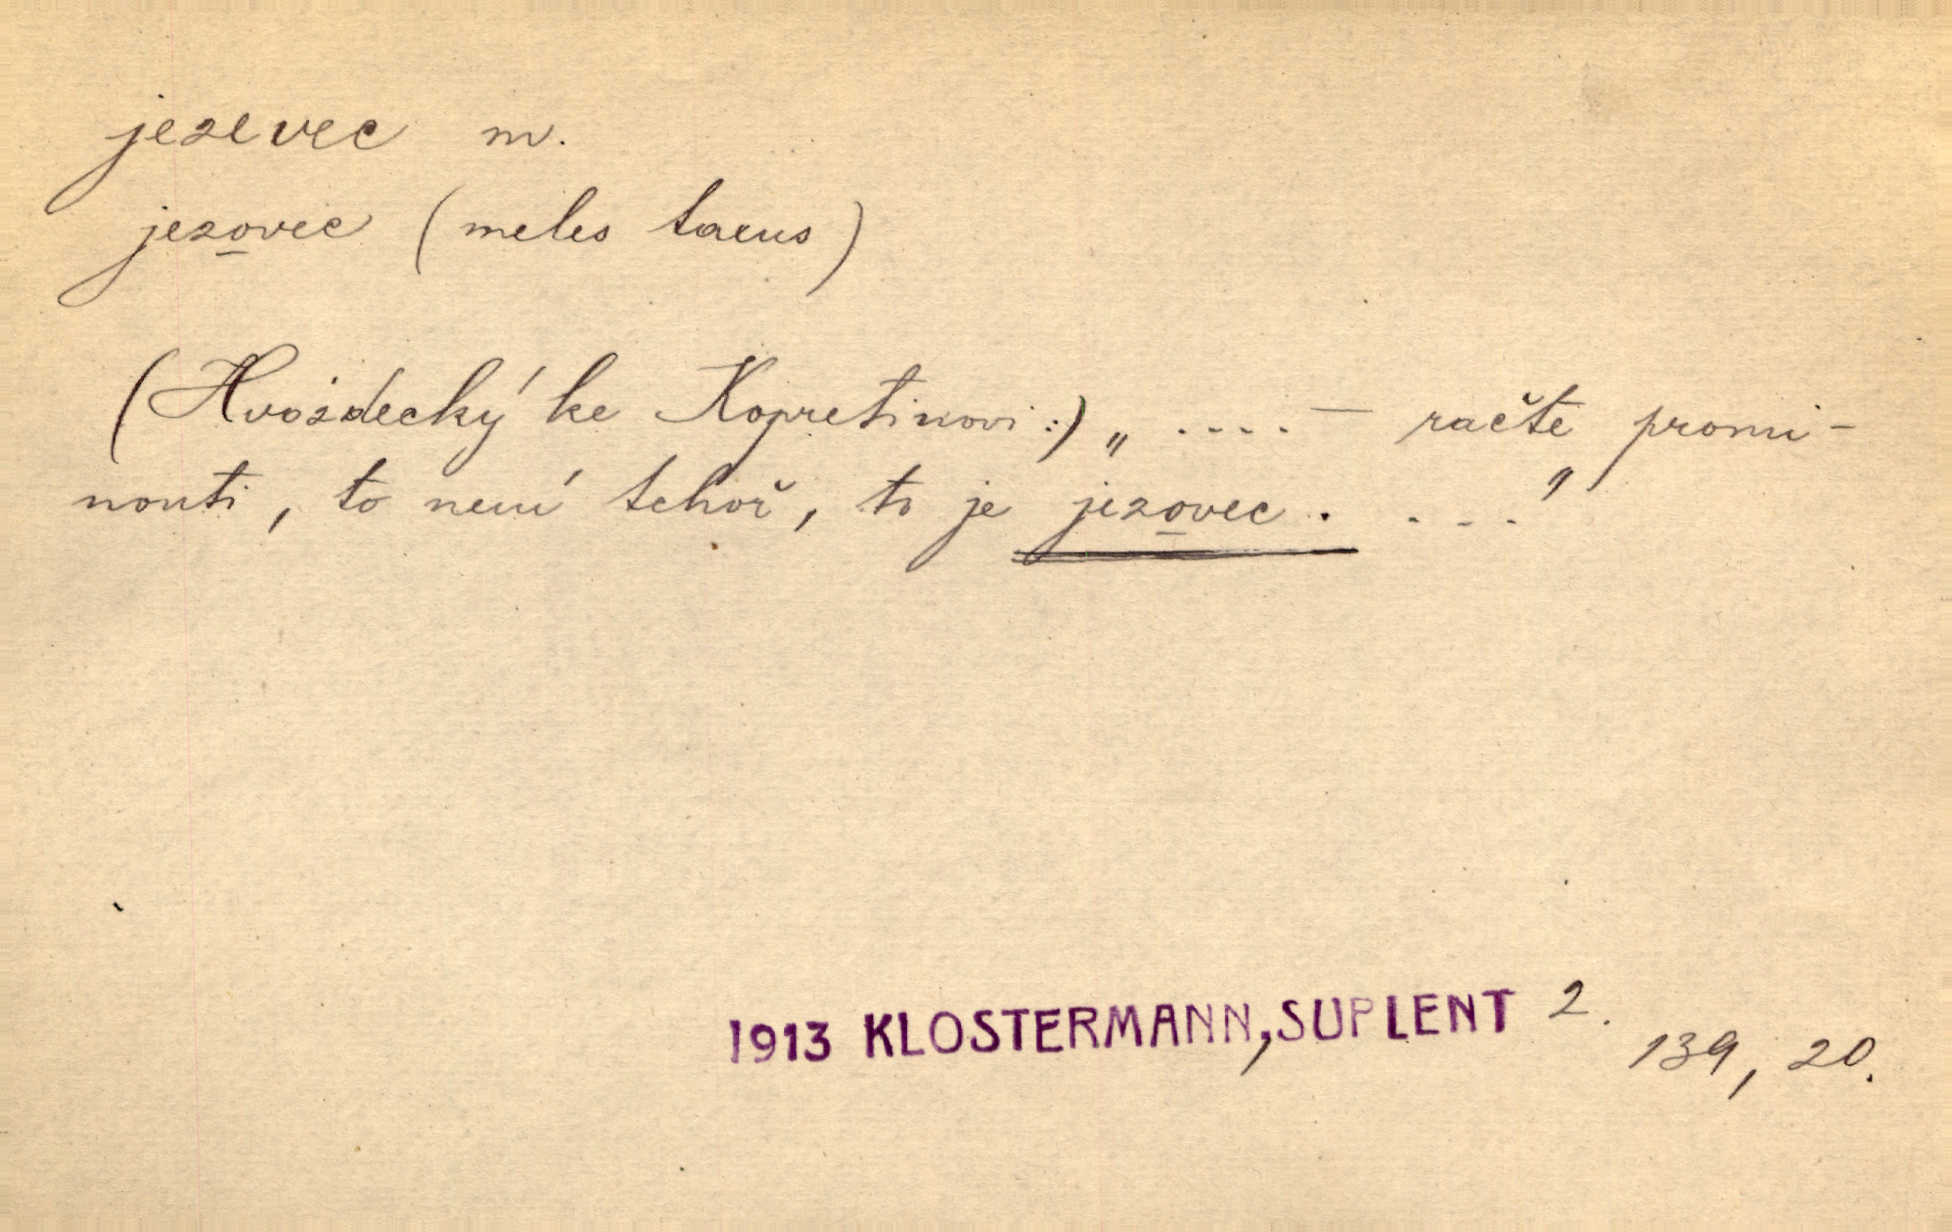 jezevec m.
jezovec (meles taeus)
(Hvozdecký ke Kopretinovi:) „ .... — račte promi-
nouti, to není tchoř, to je jezovec. ...."
1913 KLOSTERMANN, SUPLENT 2.
139, 20.